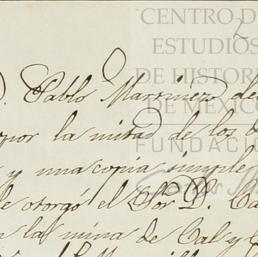 CENTRO D
ESTUDIOS
DE HISTOR
DE MEXICO
FUNDAC
D. Pablo Martinez de
por la mitad de los
y una copia simple
le otorgó el Sor D. Ca
la mina de Cal y